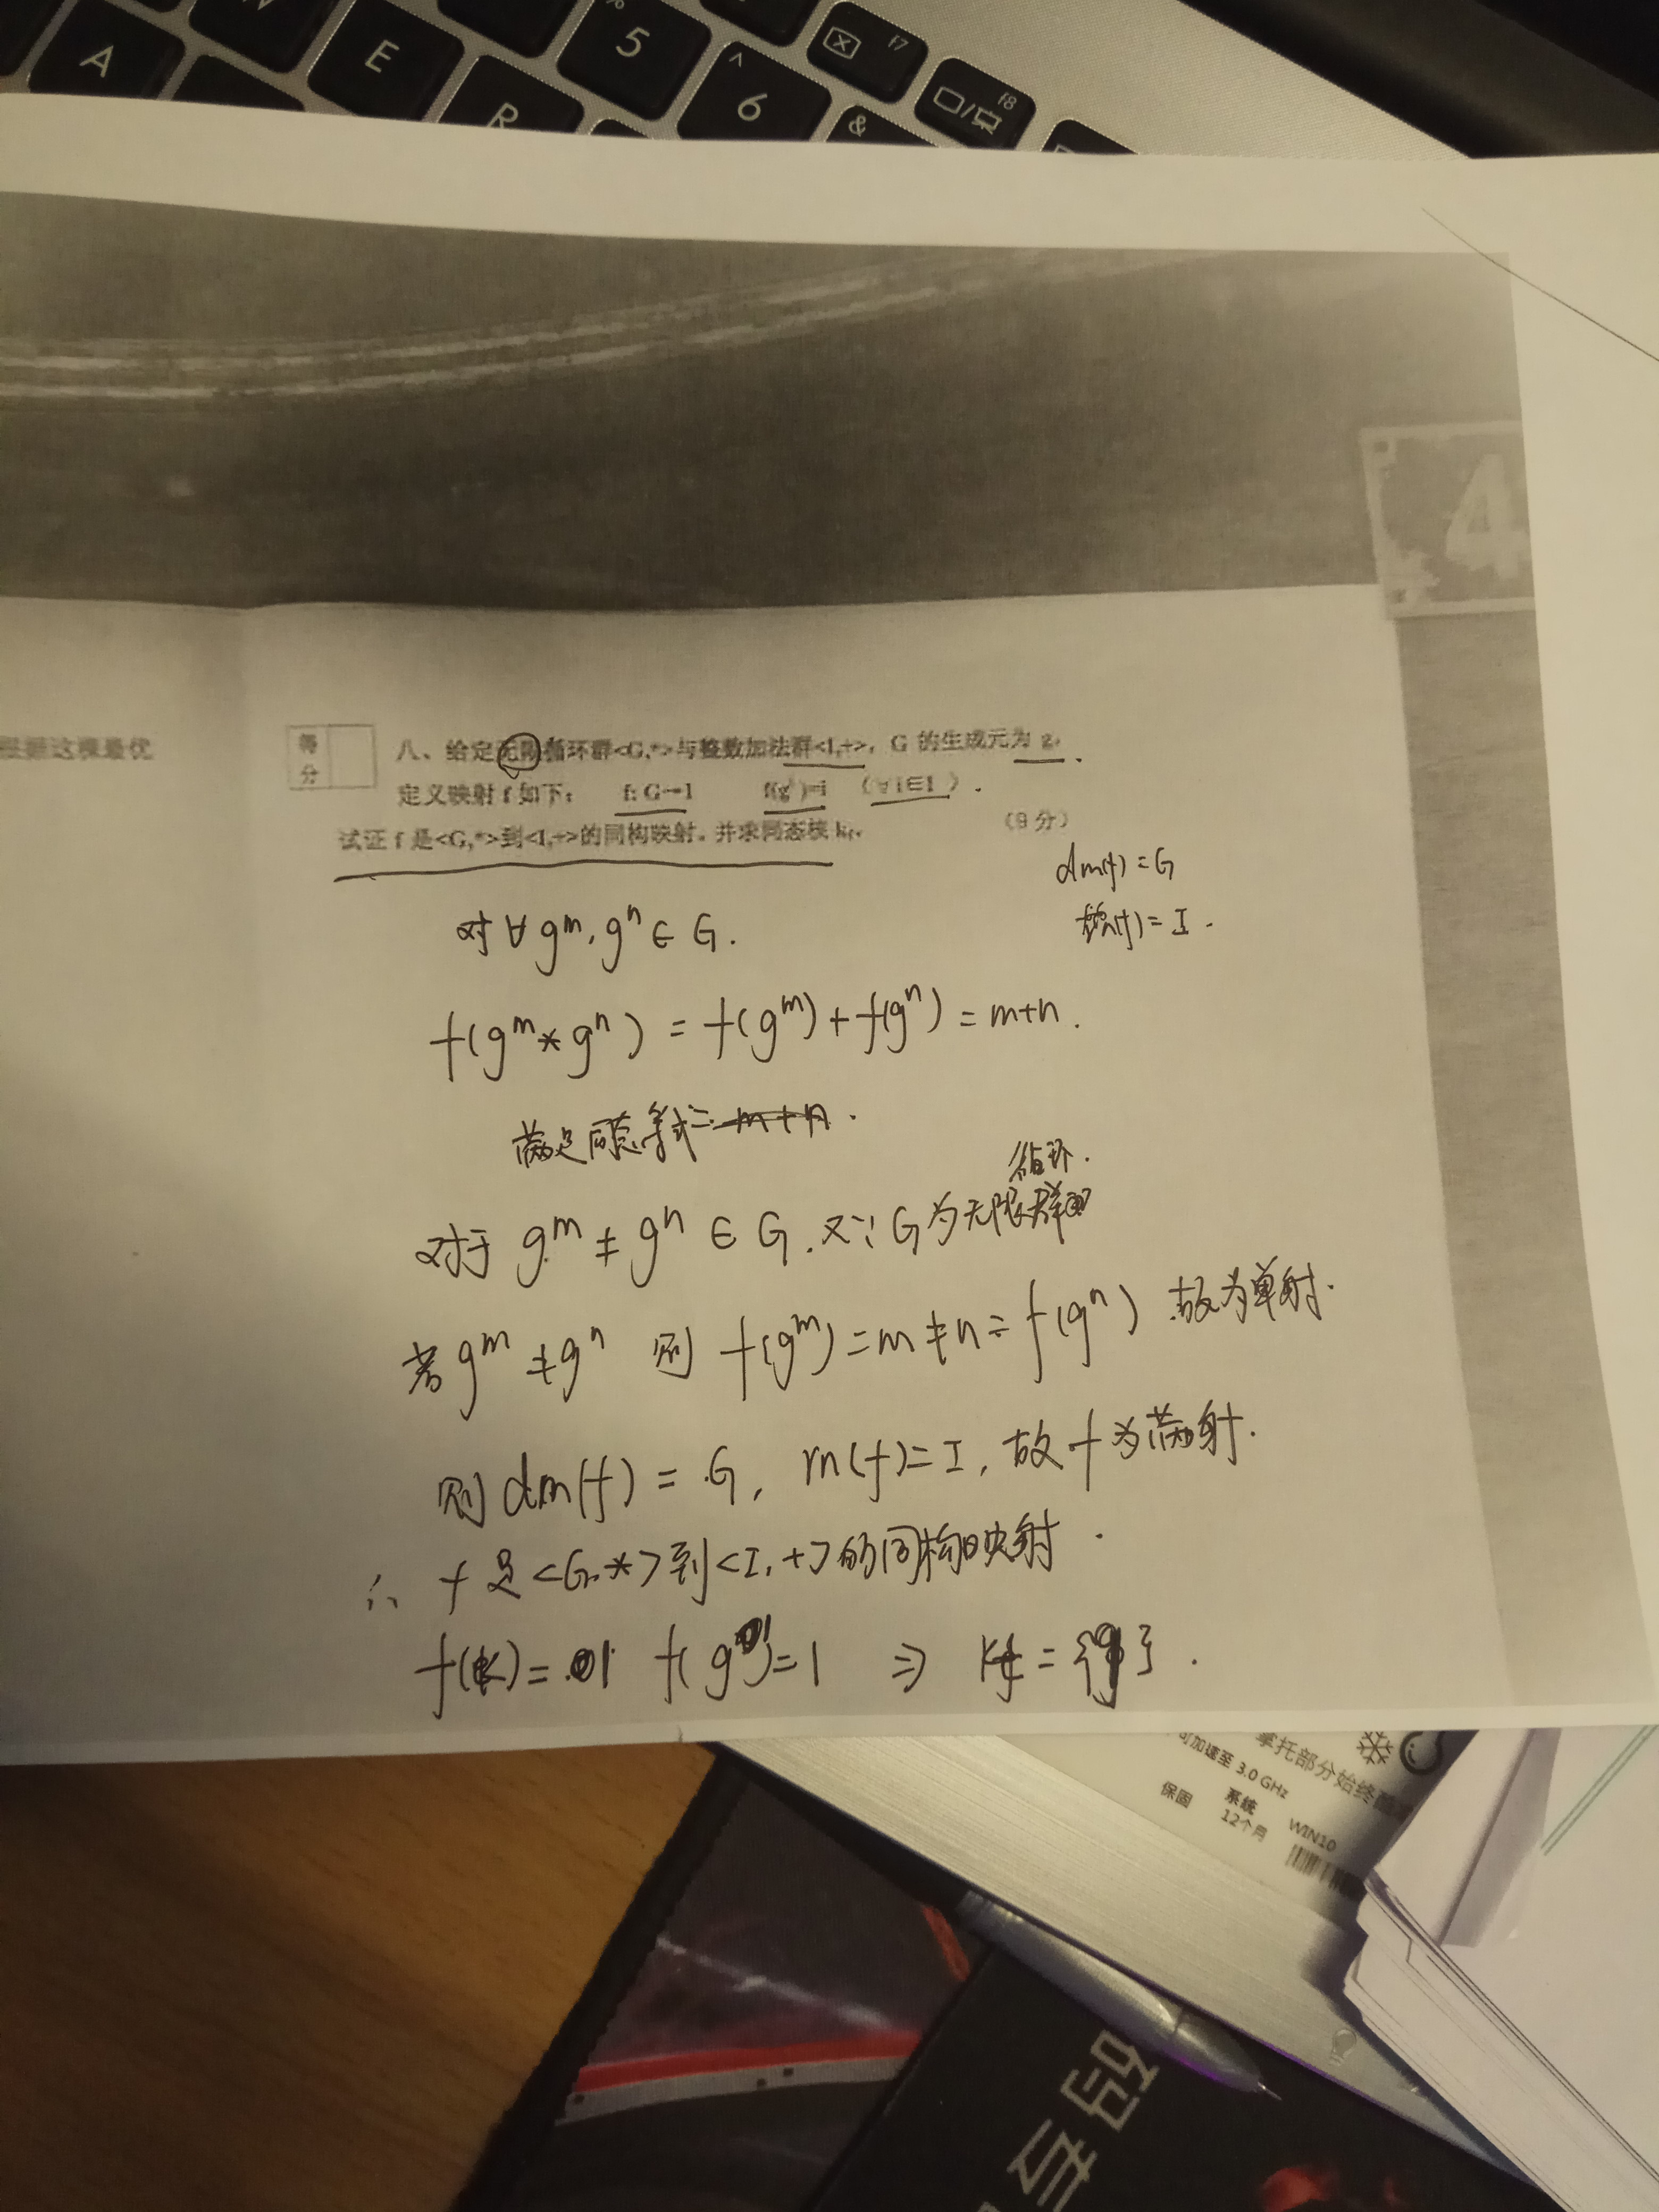 A
E
R
5
^
6
&
f7
f8
4
根据这棵最优
得
分
八、给定无限循环群<G,*>与整数加法群<I,+>，G 的生成元为 g，
定义映射 f 如下： f: G→I f(gⁱ)=i （∀i∈I）.
试证 f 是<G,*>到<I,+>的同构映射，并求同态核 kf。
（9 分）
dm(f) = G
(f) = I .
对 ∀ gᵐ, gⁿ ∈ G.
f(gᵐ * gⁿ) = f(gᵐ) + f(gⁿ) = m+n .
满足同态等式 m+n .
循环.
对于 gᵐ ≠ gⁿ ∈ G. 又∵ G为无限群
若 gᵐ ≠ gⁿ 则 f(gᵐ) = m ≠ n = f(gⁿ) 故为单射.
则 dm(f) = G, rn(f) = I, 故 f 为满射.
∴ f 是 <G,*> 到 <I,+> 的同构映射 .
f(k) = 1 f(g¹) = 1 ⇒ kf = {g} .
可加速至 3.0 GHz
摩托部分始终
系统
WIN10
保固
12个月